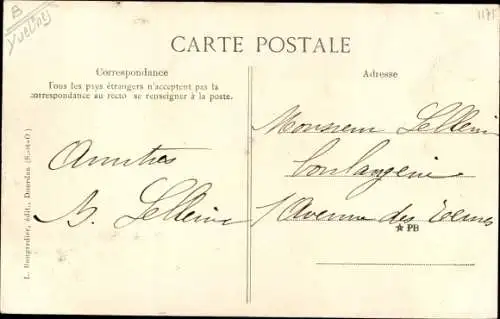 B
Yvelines
1175
CARTE POSTALE
Correspondance
Tous les pays étrangers n'acceptent pas la
correspondance au recto se renseigner à la poste.
Amitiés
Adresse
Monsieur
boulangerie
1 Avenue des Ternes
★ PB
L. Bougrelier, édit., Dourdan (S.-et-O.)